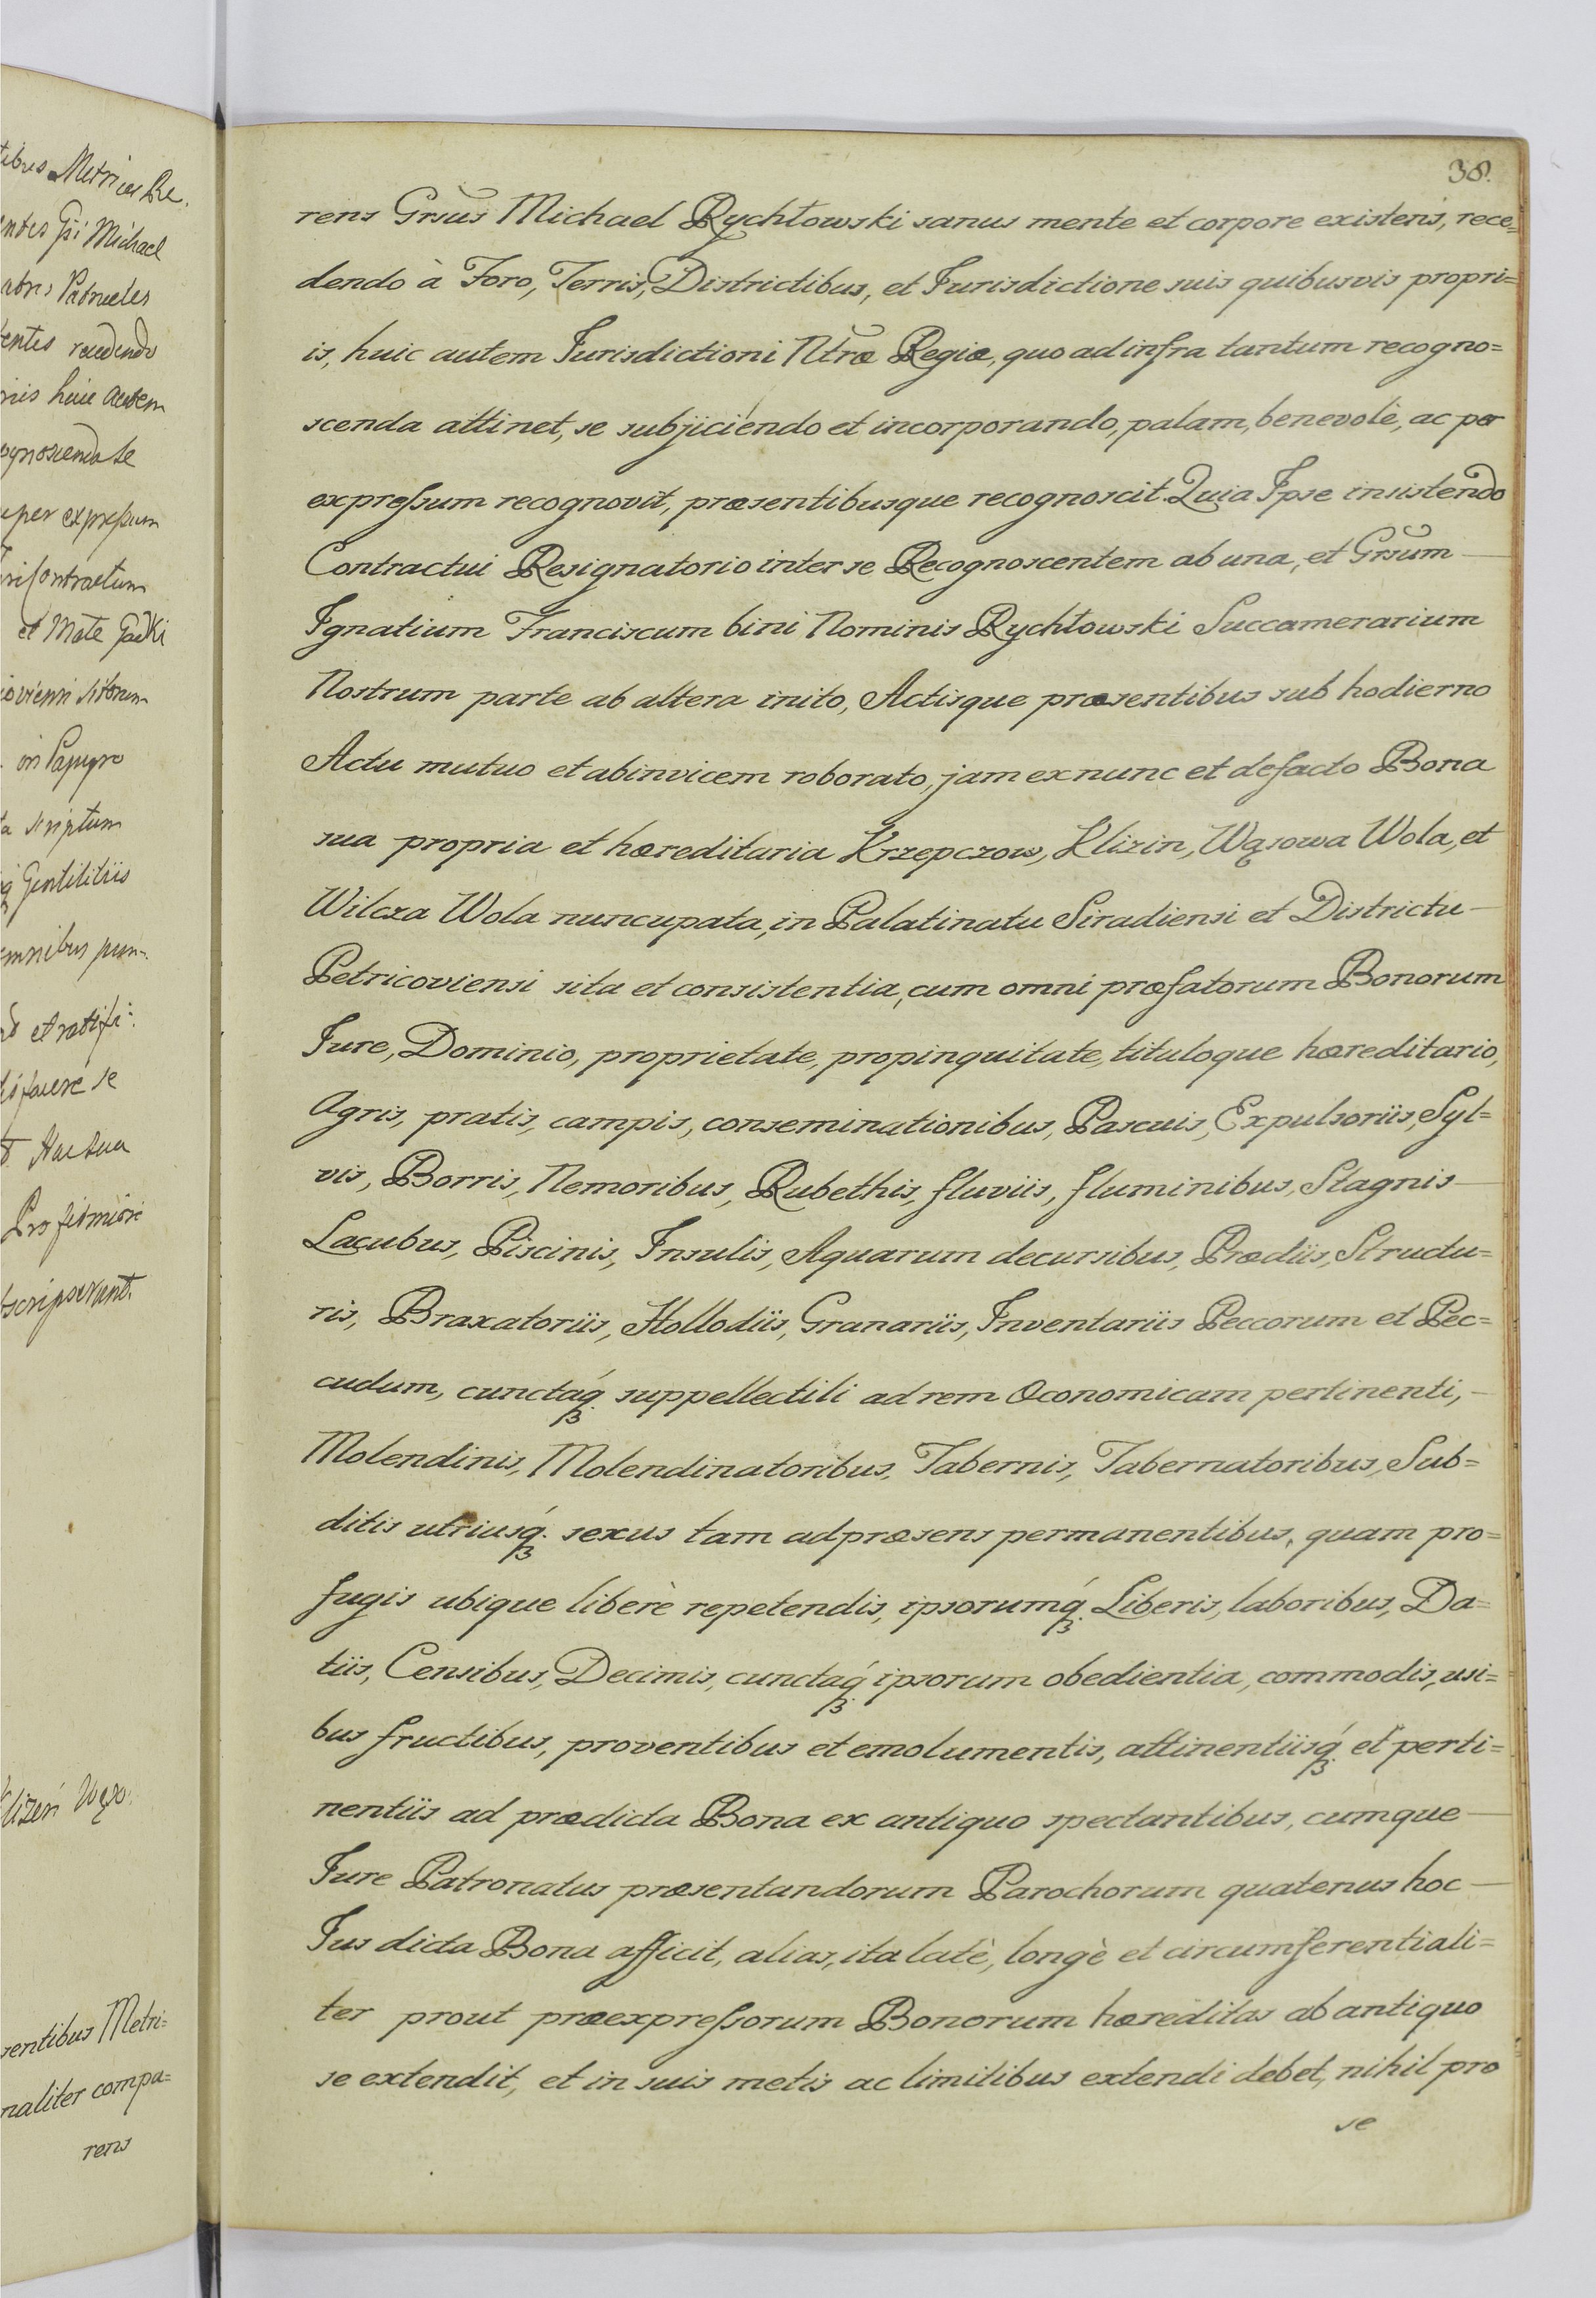 tibus Metrices Re.
entes Gsi Michael
Patrueles
entes recedendo
riis huic autem
ognoscenda se
per expressum
Contractum
et Mate Gadki
oviensi sitorum
in Papyro
scriptum
q Gentilitiis
omnibus pun-
et ratifi:
se
Pro firmiori
bscripserunt.
lizin Wąso:
sentibus Metri=
naliter compa=
rens
38.
rens Grsus Michael Rychłowski sanus mente et corpore existens, rece=
dendo à Foro, Terris, Districtibus, et Jurisdictione suis quibusvis propri=
is, huic autem Jurisdictioni Ntræ Regiæ, quo ad infra tantum recogno=
scenda attinet, se subjiciendo et incorporando, palam, benevolè, ac per
expressum recognovit, præsentibusque recognoscit. Quia Ipse insistendo
Contractui Resignatorio inter se Recognoscentem ab una, et Grsum
Ignatium Franciscum bini Nominis Rychłowski Succamerarium
Nostrum parte ab altera inito, Actisque præsentibus sub hodierno
Actu mutuo et abinvicem roborato, jam ex nunc et defacto Bona
sua propria et hæreditaria Krzepczow, Klizin, Wąsowa Wola, et
Wilcza Wola nuncupata, in Palatinatu Siradiensi et Districtu
Petricoviensi sita et consistentia, cum omni præfatorum Bonorum
Jure, Dominio, proprietate, propinquitate, tituloque hæreditario,
Agris, pratis, campis, conseminationibus, Pascuis, Expulsoriis, Syl=
vis, Borris, Nemoribus, Rubethis, fluviis, fluminibus, Stagnis
Lacubus, Piscinis, Insulis, Aquarum decursibus, Prædiis, Structu=
ris, Braxatoriis, Hollodiis, Granariis, Inventariis Peccorum et Pec=
cudum, cunctaq́ꝫ suppellectili ad rem Œconomicam pertinenti,
Molendinis, Molendinatoribus, Tabernis, Tabernatoribus, Sub=
ditis utriusq́ꝫ. sexus tam ad præsens permanentibus, quam pro=
fugis ubique liberè repetendis, ipsorumq́ꝫ Liberis, laboribus, Da=
tiis, Censibus, Decimis, cunctaq́ꝫ ipsorum obedientia, commodis, usi=
bus fructibus, proventibus et emolumentis, attinentiisq́ꝫ et perti=
nentiis ad prædicta Bona ex antiquo spectantibus, cumque
Jure Patronatus præsentandorum Parochorum quatenus hoc
Jus dicta Bona afficit, alias, ita latè, longè et circumferentiali=
ter prout præexpressorum Bonorum hæreditas ab antiquo
se extendit, et in suis metis ac limitibus extendi debet, nihil pro
se